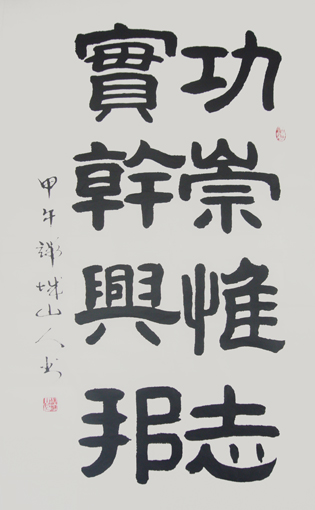 功崇惟志
實幹興邦
甲午彭城山人書